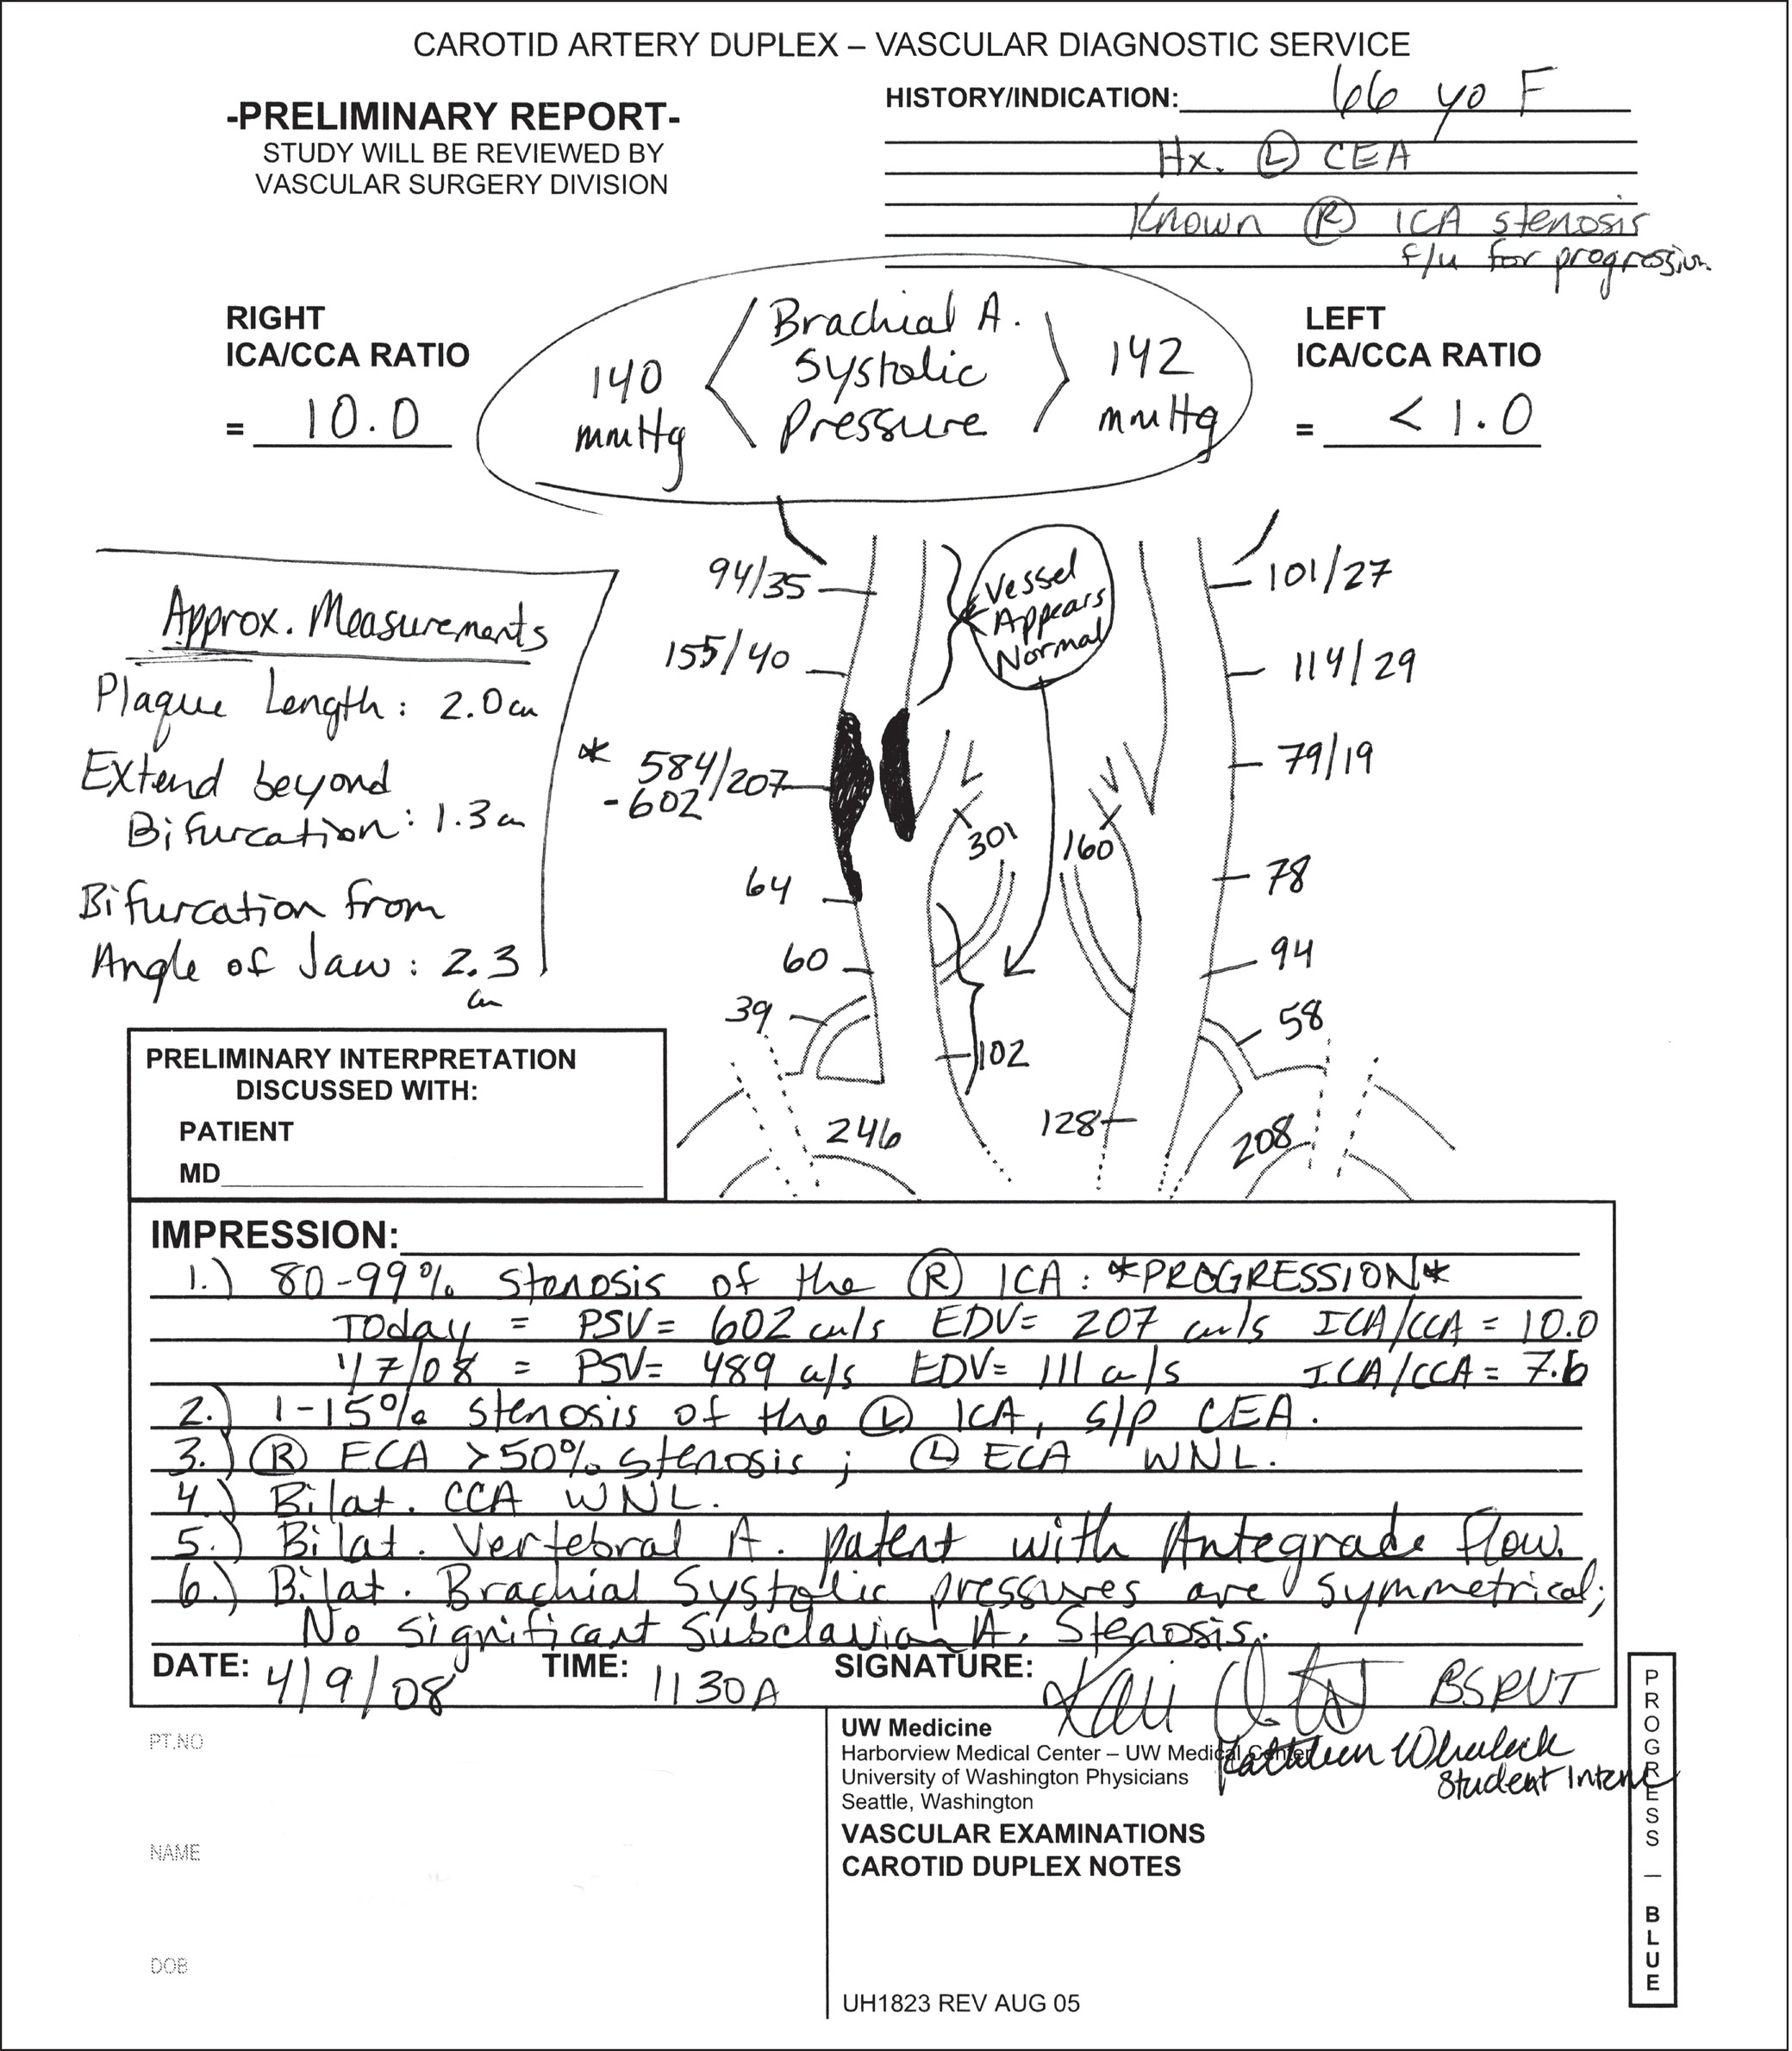 CAROTID ARTERY DUPLEX – VASCULAR DIAGNOSTIC SERVICE
-PRELIMINARY REPORT-
STUDY WILL BE REVIEWED BY
VASCULAR SURGERY DIVISION
HISTORY/INDICATION: 66 yo F
Hx. Ⓛ CEA
Known Ⓡ ICA stenosis
f/u for progression
RIGHT
ICA/CCA RATIO
= 10.0
140
mmHg
Brachial A.
Systolic
Pressure
142
mmHg
LEFT
ICA/CCA RATIO
= < 1.0
Approx. Measurements
Plaque Length: 2.0 cm
Extend beyond
Bifurcation: 1.3 cm
Bifurcation from
Angle of Jaw: 2.3
cm
94/35
155/40
* 584/207
-602
64
60
39
102
246
Vessel
Appears
Normal
301
160
101/27
114/29
79/19
78
94
58
128
208
PRELIMINARY INTERPRETATION
DISCUSSED WITH:
PATIENT
MD
IMPRESSION:
1.) 80-99% stenosis of the Ⓡ ICA: *PROGRESSION*
Today = PSV= 602 cm/s EDV= 207 cm/s ICA/CCA = 10.0
1/7/08 = PSV= 489 c/s EDV= 111 c/s ICA/CCA = 7.6
2.) 1-15% stenosis of the Ⓛ ICA, s/p CEA.
3.) Ⓡ ECA >50% stenosis; Ⓛ ECA WNL.
4.) Bilat. CCA WNL.
5.) Bilat. Vertebral A. patent with Antegrade flow.
6.) Bilat. Brachial Systolic pressures are symmetrical;
No significant Subclavian A. Stenosis.
DATE: 4/9/08 TIME: 1130A SIGNATURE: BSRVT
Kathleen
Student Intern
PT.NO
NAME
DOB
UW Medicine
Harborview Medical Center – UW Medical Center
University of Washington Physicians
Seattle, Washington
VASCULAR EXAMINATIONS
CAROTID DUPLEX NOTES
UH1823 REV AUG 05
PROGRESS – BLUE